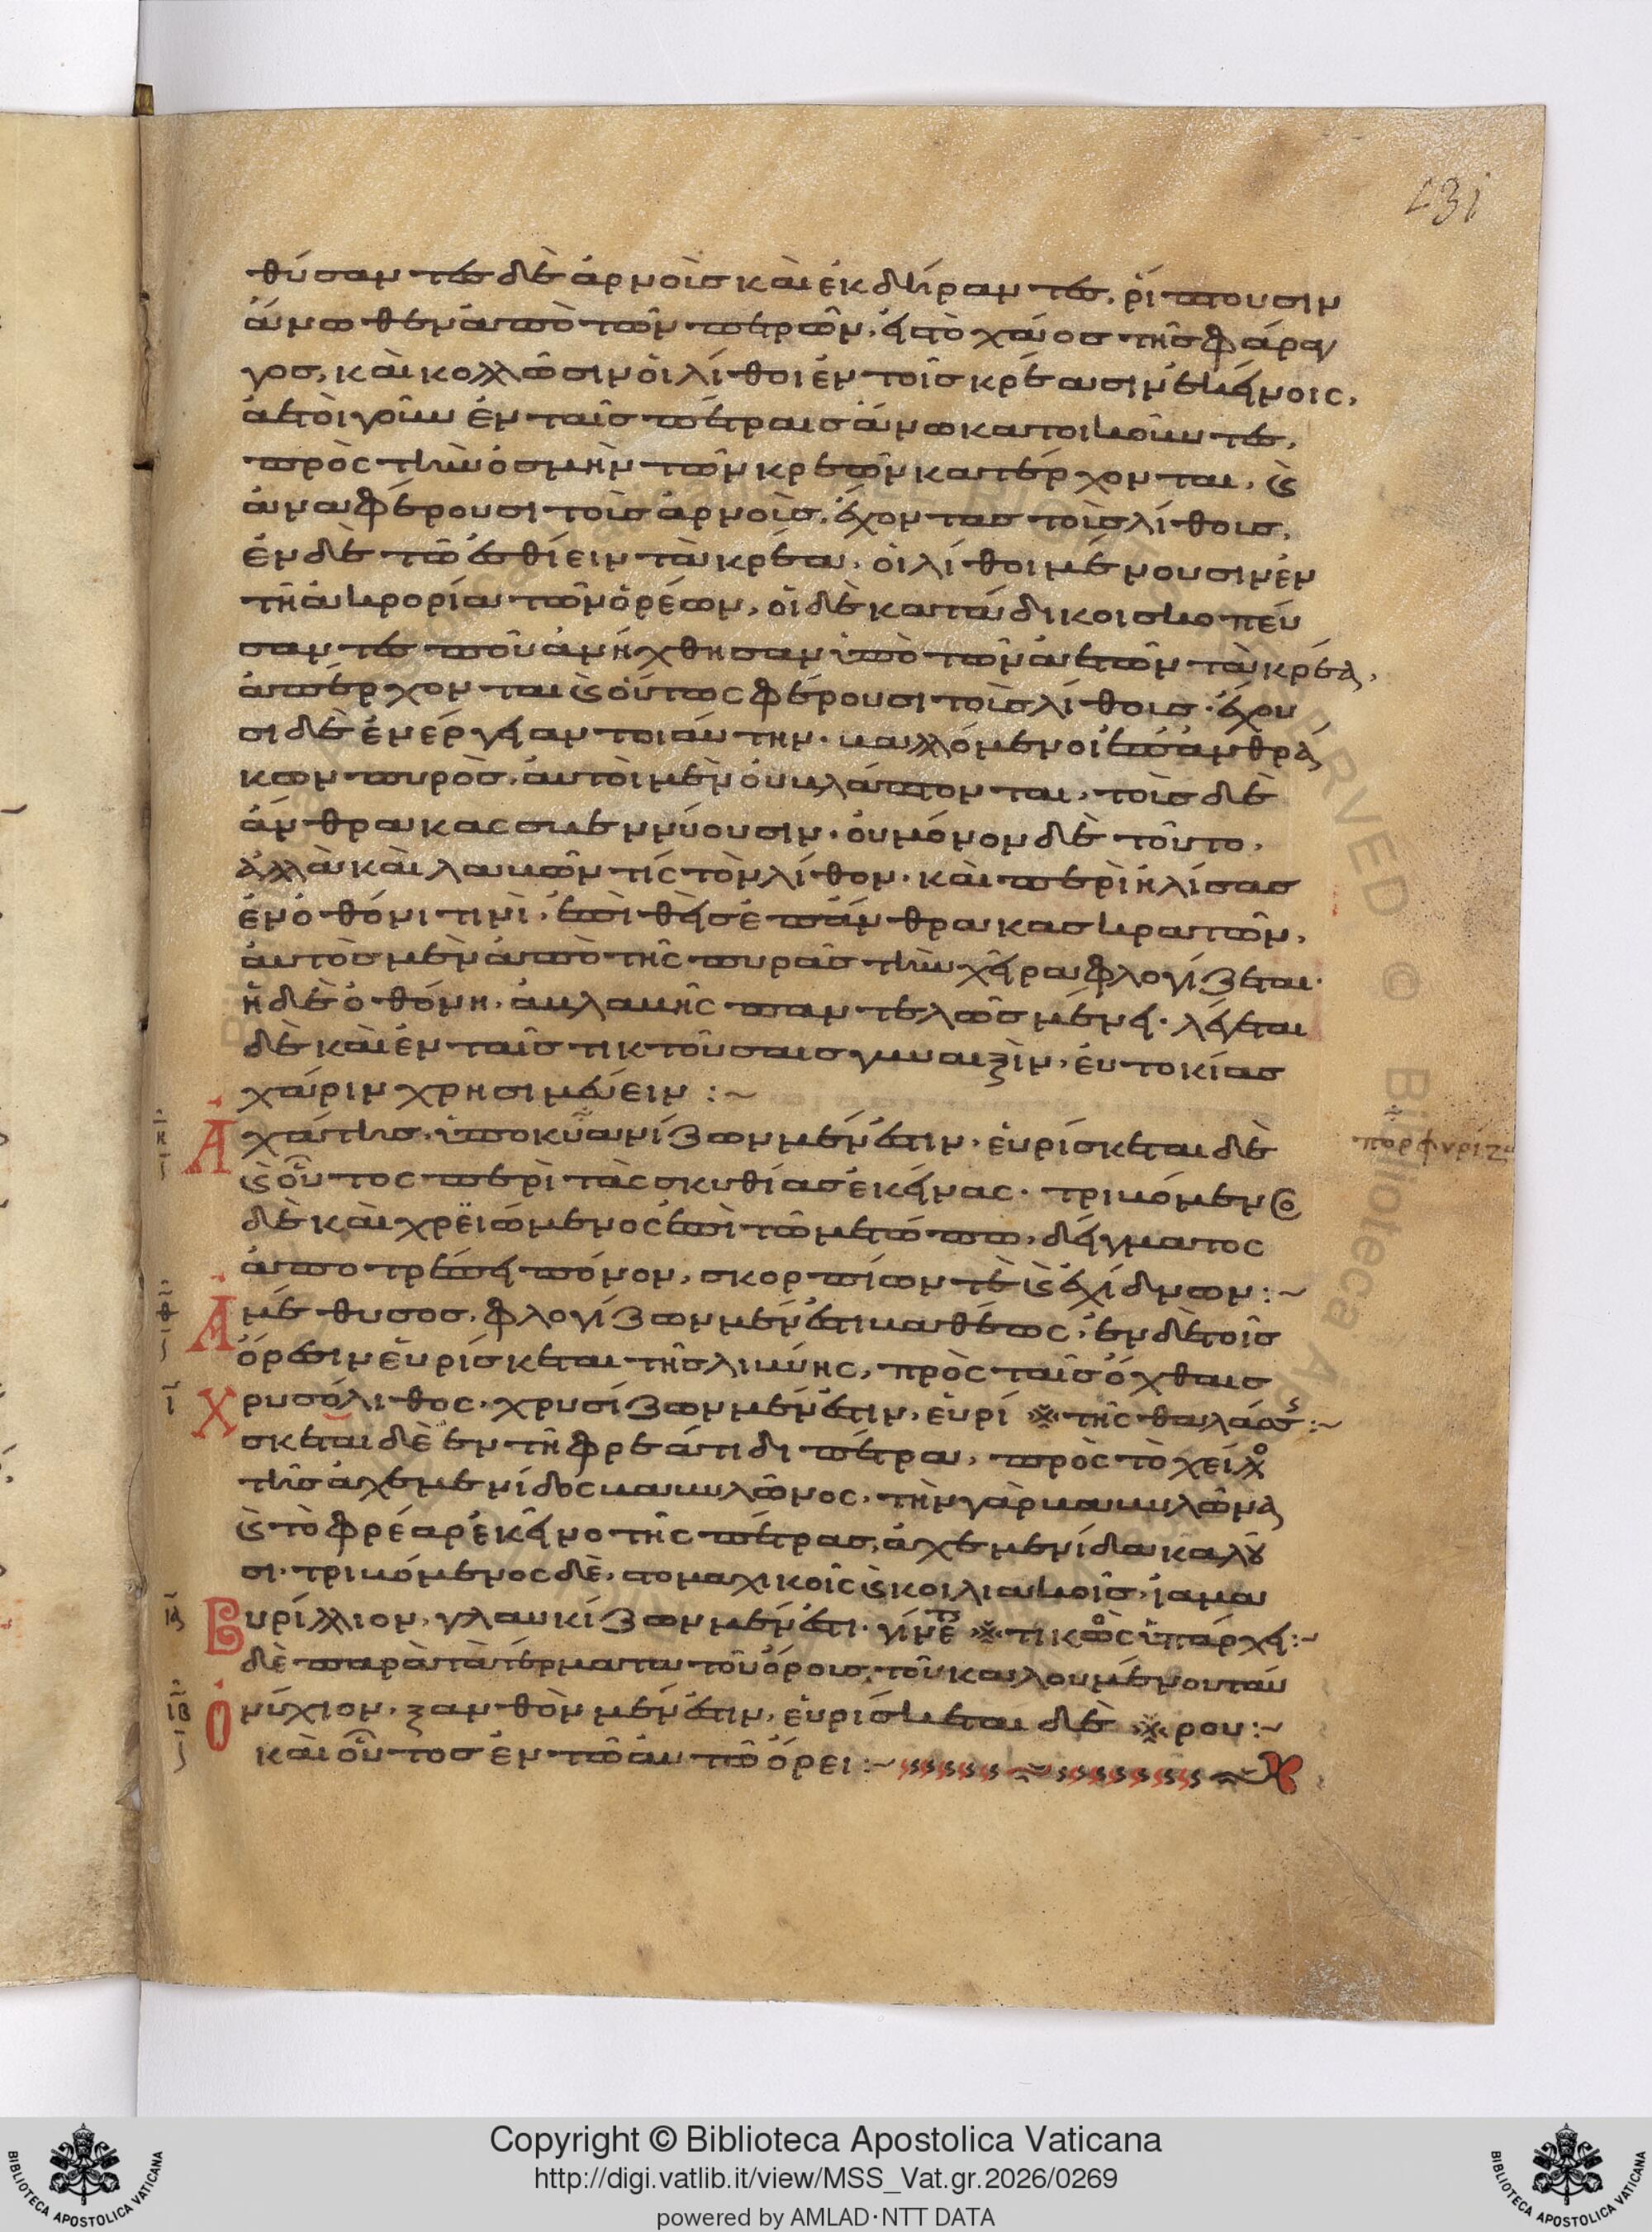 131
θύσαντες δὲ ἀρνοὺς καὶ ἐκδήραντες, ῥίπτουσιν
ἄνωθεν ἀπὸ τῶν πετρῶν, εἰς τὸ χάος τῆς φάραγ
γος, καὶ κολλῶσιν οἱ λίθοι ἐν τοῖς κρέασιν ἐκείνοις,
ἀετοὶ γοῦν ἐν ταῖς πέτραις ἄνω κατοικοῦντες,
πρὸς τὴν ὀσμὴν τῶν κρεῶν κατέρχονται, καὶ
ἀναφέρουσι τοὺς ἀρνοὺς, ἔχοντας τοὺς λίθους,
ἐν δὲ τῷ ἐσθίειν τὰ κρέα, οἱ λίθοι μένουσιν ἐν
τῇ ἀκρορίᾳ τῶν ὀρέων, οἱ δὲ κατάδικοι σκοπεύ
σαντες ποῦ ἀνήχθησαν ὑπὸ τῶν ἀετῶν τὰ κρέα,
ἀπέρχονται καὶ οὕτως φέρουσι τοὺς λίθους. ἔχου
σι δὲ ἐνέργειαν τοιαύτην. βαλλόμενοι ἐπ' ἀνθρά
κων πυρὸς, αὐτοὶ μὲν οὐ βλάπτονται, τοὺς δὲ
ἄνθρακας σβεννύουσιν. οὐ μόνον δὲ τοῦτο,
ἀλλὰ καὶ λαβών τίς τὸν λίθον. καὶ περιηλίσας
ἐν ὀθόνι τινὶ, ἐπιθεὶς ἐπ' ἄνθρακας κρατῶν,
αὐτὸς μὲν ἀπὸ τῆς πυρᾶς τὴν χεῖρα φλογίζεται.
ἡ δὲ ὀθόνη, ἀβλαβὴς παντελῶς μένει. λέγεται
δὲ καὶ ἐν ταῖς τικτούσαις γυναιξὶν, εὐτοκίας
χάριν χρησιμεύειν :~
η Ἀχάτης, ὑποκυανίζων μέν ἐστιν. εὑρίσκεται δὲ
πορφυρίζ
καὶ οὗτος περὶ τὰς σκυθίας ἐκείνας. τριβόμενος
δὲ καὶ χρϊειόμενος ἐπὶ τῷ μετώπῳ, δείγματος
ἀποτρέπει πόνον, σκορπίων τὲ καὶ ἐχίδνων :~
θ Ἀμέθυσος, φλογίζων μέν ἐστι βαθέως, ἐν δὲ τοῖς
ὄρεσιν εὑρίσκεται τῆς λιβύης, πρὸς ταῖς ὄχθαις
ι Χρυσόλιθος. χρυσίζων μέν ἐστιν, εὑρί ※ τῆς θαλάσσης :~
σκεται δὲ ἐν τῇ φρεάτιδι πέτρᾳ, πρὸς τὸ χεῖλος
τῆς ἀχεμενίδος βαβυλῶνος, τὴν γὰρ βαβυλῶνα
καὶ τὸ φρέαρ ἐκεῖνο τῆς πέτρας, ἀχεμενίδα καλοῦ
σι. τριβόμενος δὲ, στομαχικοῖς καὶ κοιλιακοῖς, ἴαμα
ια Βυρίλλιον, γλαυκίζων μέν ἐστι. γίνεται ※ τικὸς ὑπάρχει :~
δὲ παρὰ τὰ τέρματα τοῦ ὄρους, τοῦ καλουμένου ταύ
ιβ Ὀνύχιον, ξανθὸν μέν ἐστιν, εὑρίσκεται δὲ ※ ρου :~
καὶ οὗτος ἐν τῷ αὐτῷ ὄρει :~
Copyright © Biblioteca Apostolica Vaticana
http://digi.vatlib.it/view/MSS_Vat.gr.2026/0269
powered by AMLAD·NTT DATA
BIBLIOTECA APOSTOLICA VATICANA
BIBLIOTECA APOSTOLICA VATICANA